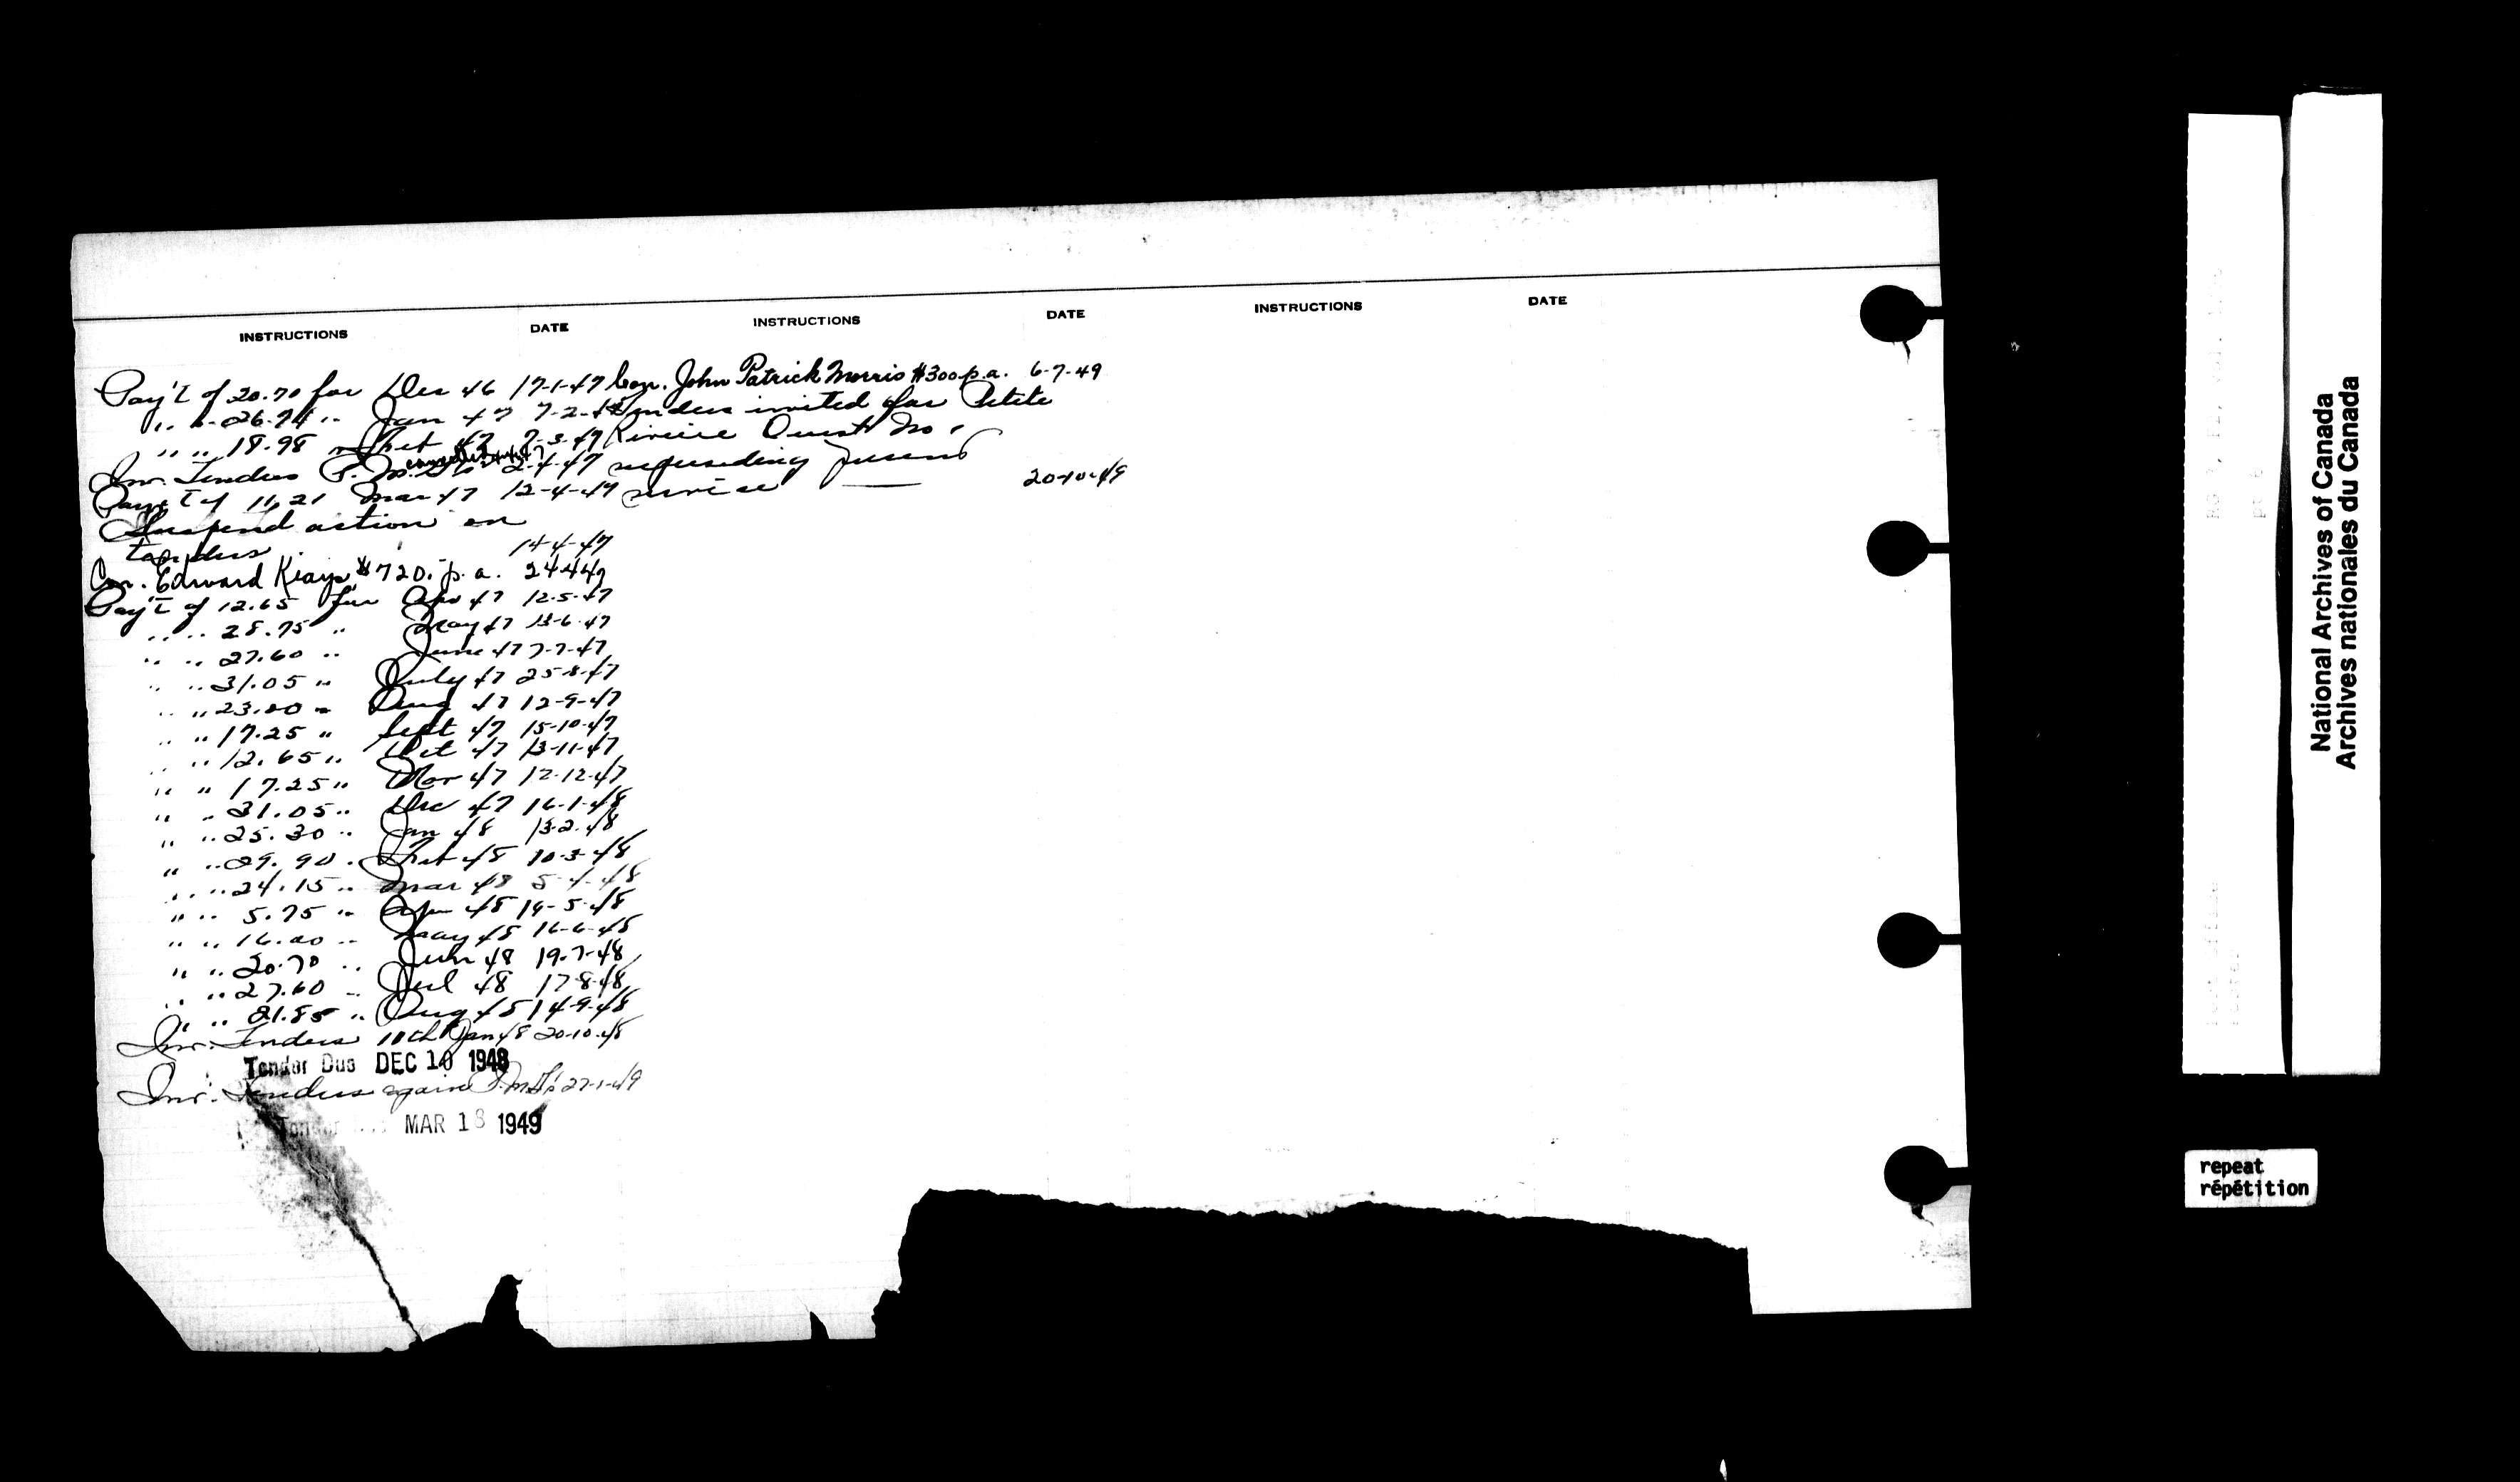 INSTRUCTIONS DATE INSTRUCTIONS DATE INSTRUCTIONS DATE
Pay't of 20.70 for Dec 46 17-1-47
" " 26.74 " Jan 47 7-2-47
" " 18.98 " Feb 47 7-3-47
Inv. Tenders P. 2-4-47
Paym't of 11.21 Mar 47 12-4-47
Suspend action on
tenders 14-4-47
Con. Edward Keays $720. p.a. 24-4-47
Pay't of 12.65 for Apr 47 12-5-47
" " 28.75 " May 47 13-6-47
" " 27.60 " June 47 7-7-47
" " 31.05 " July 47 25-8-47
" " 23.00 " Aug 47 12-9-47
" " 17.25 " Sept 47 15-10-47
" " 12.65 " Oct 47 13-11-47
" " 17.25 " Nov 47 12-12-47
" " 31.05 " Dec 47 16-1-48
" " 25.30 " Jan 48 13-2-48
" " 29.90 " Feb 48 10-3-48
" " 24.15 " Mar 48 5-4-48
" " 5.75 " Apr 48 14-5-48
" " 16.00 " May 48 16-6-48
" " 20.70 " Jun 48 19-7-48
" " 27.60 " Jul 48 17-8-48
" " 21.85 " Aug 48 14-9-48
Inv. Tenders 11th Jan 48 20-10-48
Tender Due DEC 10 1948
Inv. Tenders again 27-1-49
MAR 18 1949
Con. John Patrick Morris $300 p.a. 6-7-49
Tenders invited for Petite
Riviere Ouest No.
service 20-10-49
National Archives of Canada
Archives nationales du Canada
repeat
répétition